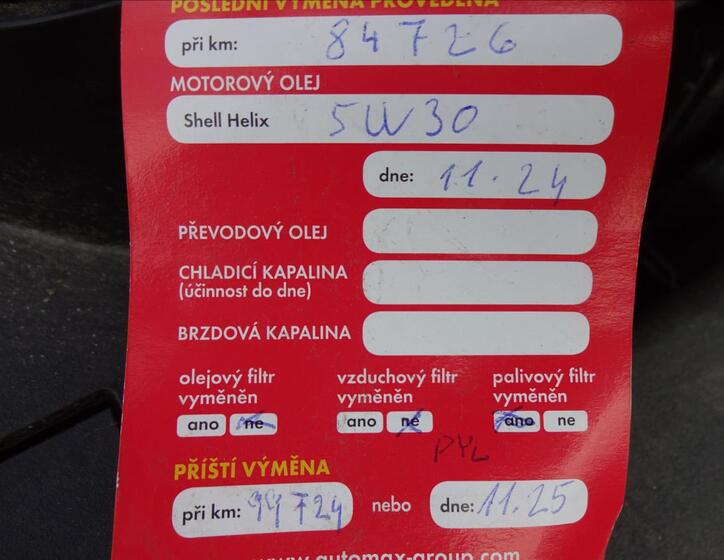 POSLEDNÍ VÝMĚNA PROVEDENA
při km: 84726
MOTOROVÝ OLEJ
Shell Helix 5W30
dne: 11.24
PŘEVODOVÝ OLEJ
CHLADICÍ KAPALINA
(účinnost do dne)
BRZDOVÁ KAPALINA
olejový filtr vzduchový filtr palivový filtr
vyměněn vyměněn vyměněn
ano ne ano ne ano ne
PYL
PŘÍŠTÍ VÝMĚNA
při km: 99724 nebo dne: 11.25
www.automax-group.com